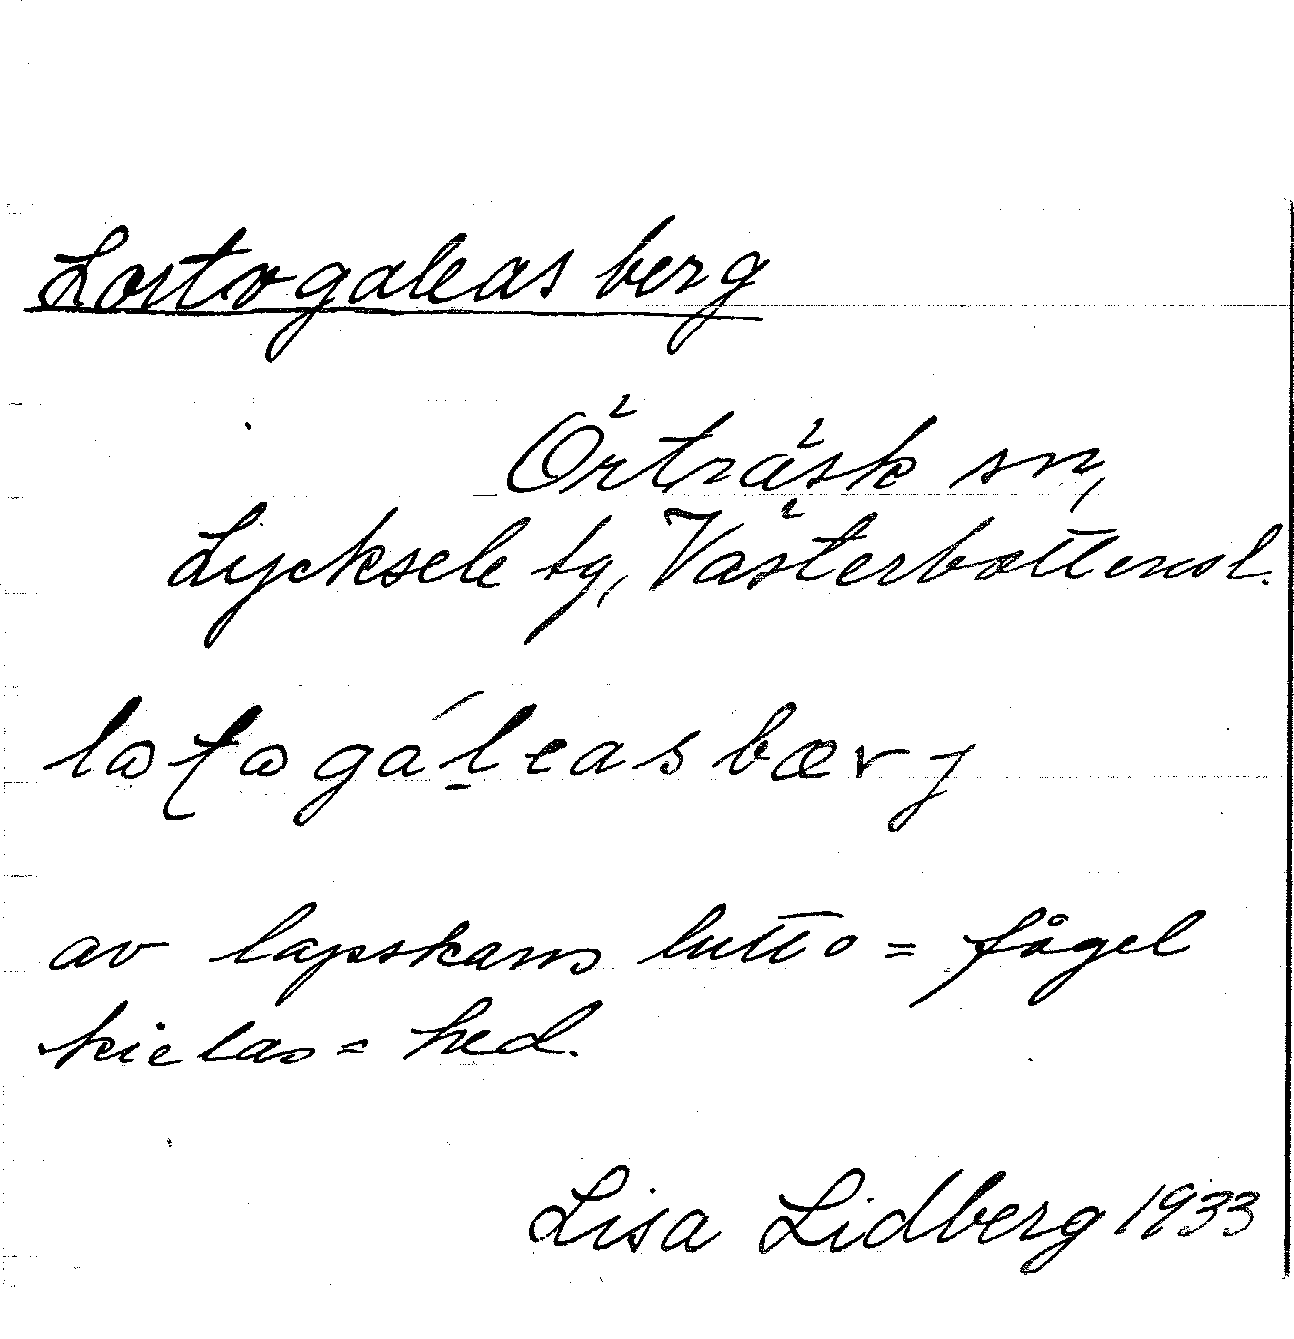 Lortogaleasberg
Örträsk sn,
Lycksele tg, Västerbottensl.
av lapskans lutto = fågel
kielas = hed.
Lisa Lidberg 1933